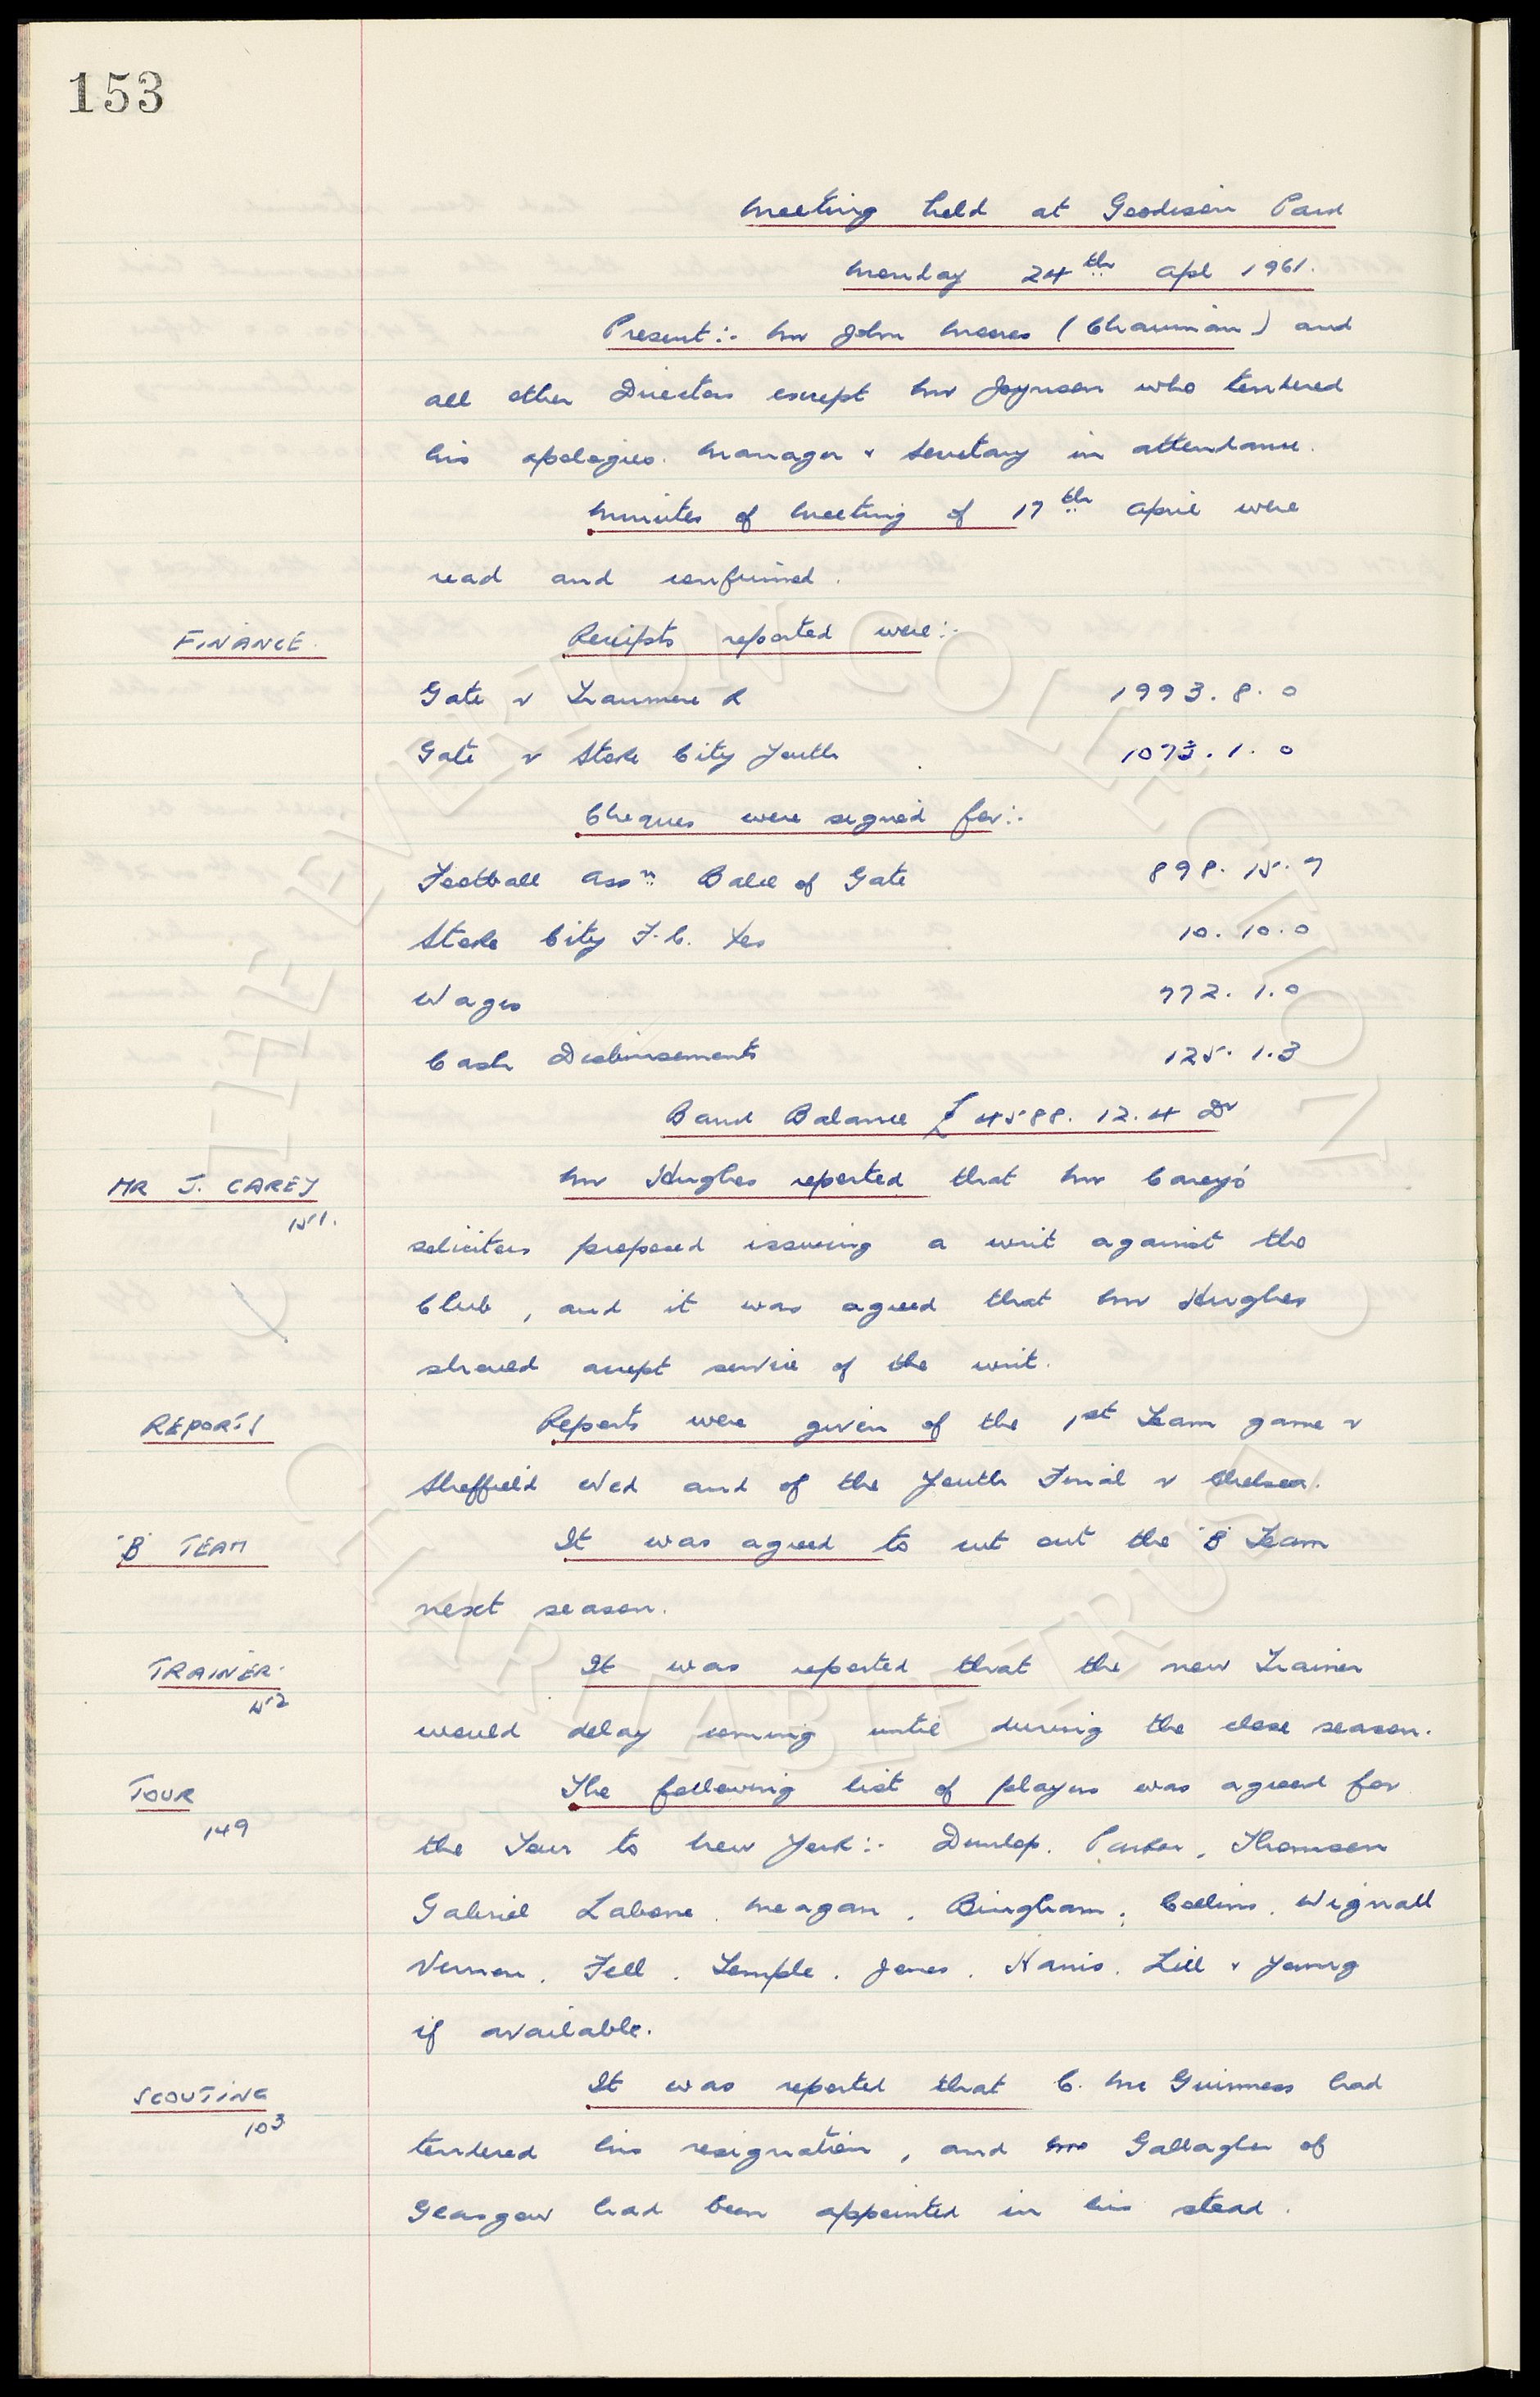 153
Meeting held at Goodison Park
Monday 24th Apl 1961.
Present:- Mr John Moores (Chairman) and
all other Directors except Mr Joynson who tendered
his apologies. Manager & Secretary in attendance.
Minutes of Meeting of 17th April were
read and confirmed.
FINANCE. Receipts reported were:-
Gate v Tranmere R 1993. 8. 0
Gate v Stoke City Youth 1073. 1. 0
Cheques were signed for:-
Football Assn Balce of Gate 898. 15. 7
Stoke City F.C. Xes 10. 10. 0
Wages 772. 1. 0
Cash Disbursements 125. 1. 3
Bank Balance £4588. 12. 4 Dr
MR J. CAREY Mr Hughes reported that Mr Carey's
151.
solicitors proposed issuing a writ against the
Club, and it was agreed that Mr Hughes
should accept service of the writ.
REPORTS Reports were given of the 1st Team game v
Sheffield Wed and of the Youth Final v Chelsea.
'B' TEAM It was agreed to cut out the 'B' Team
next season.
TRAINER. It was reported that the new Trainer
152
would delay coming until during the close season.
TOUR The following list of players was agreed for
149
the Tour to New York:- Dunlop. Parker. Thomson
Gabriel Labone. Meagan. Bingham. Collins. Wignall
Vernon. Fell. Temple. Jones. Harris. Lill & Young
if available.
SCOUTING It was reported that C. McGuinness had
103
tendered his resignation, and Mr Gallagher of
Glasgow had been appointed in his stead.
THE EVERTON COLLECTION
CHARITABLE TRUST